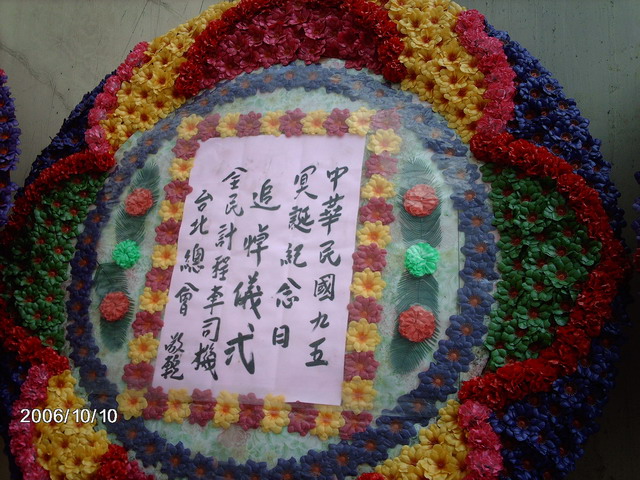 中華民國九五
冥誕紀念日
追悼儀式
全民計程車司機
台北總會
敬輓
2006/10/10